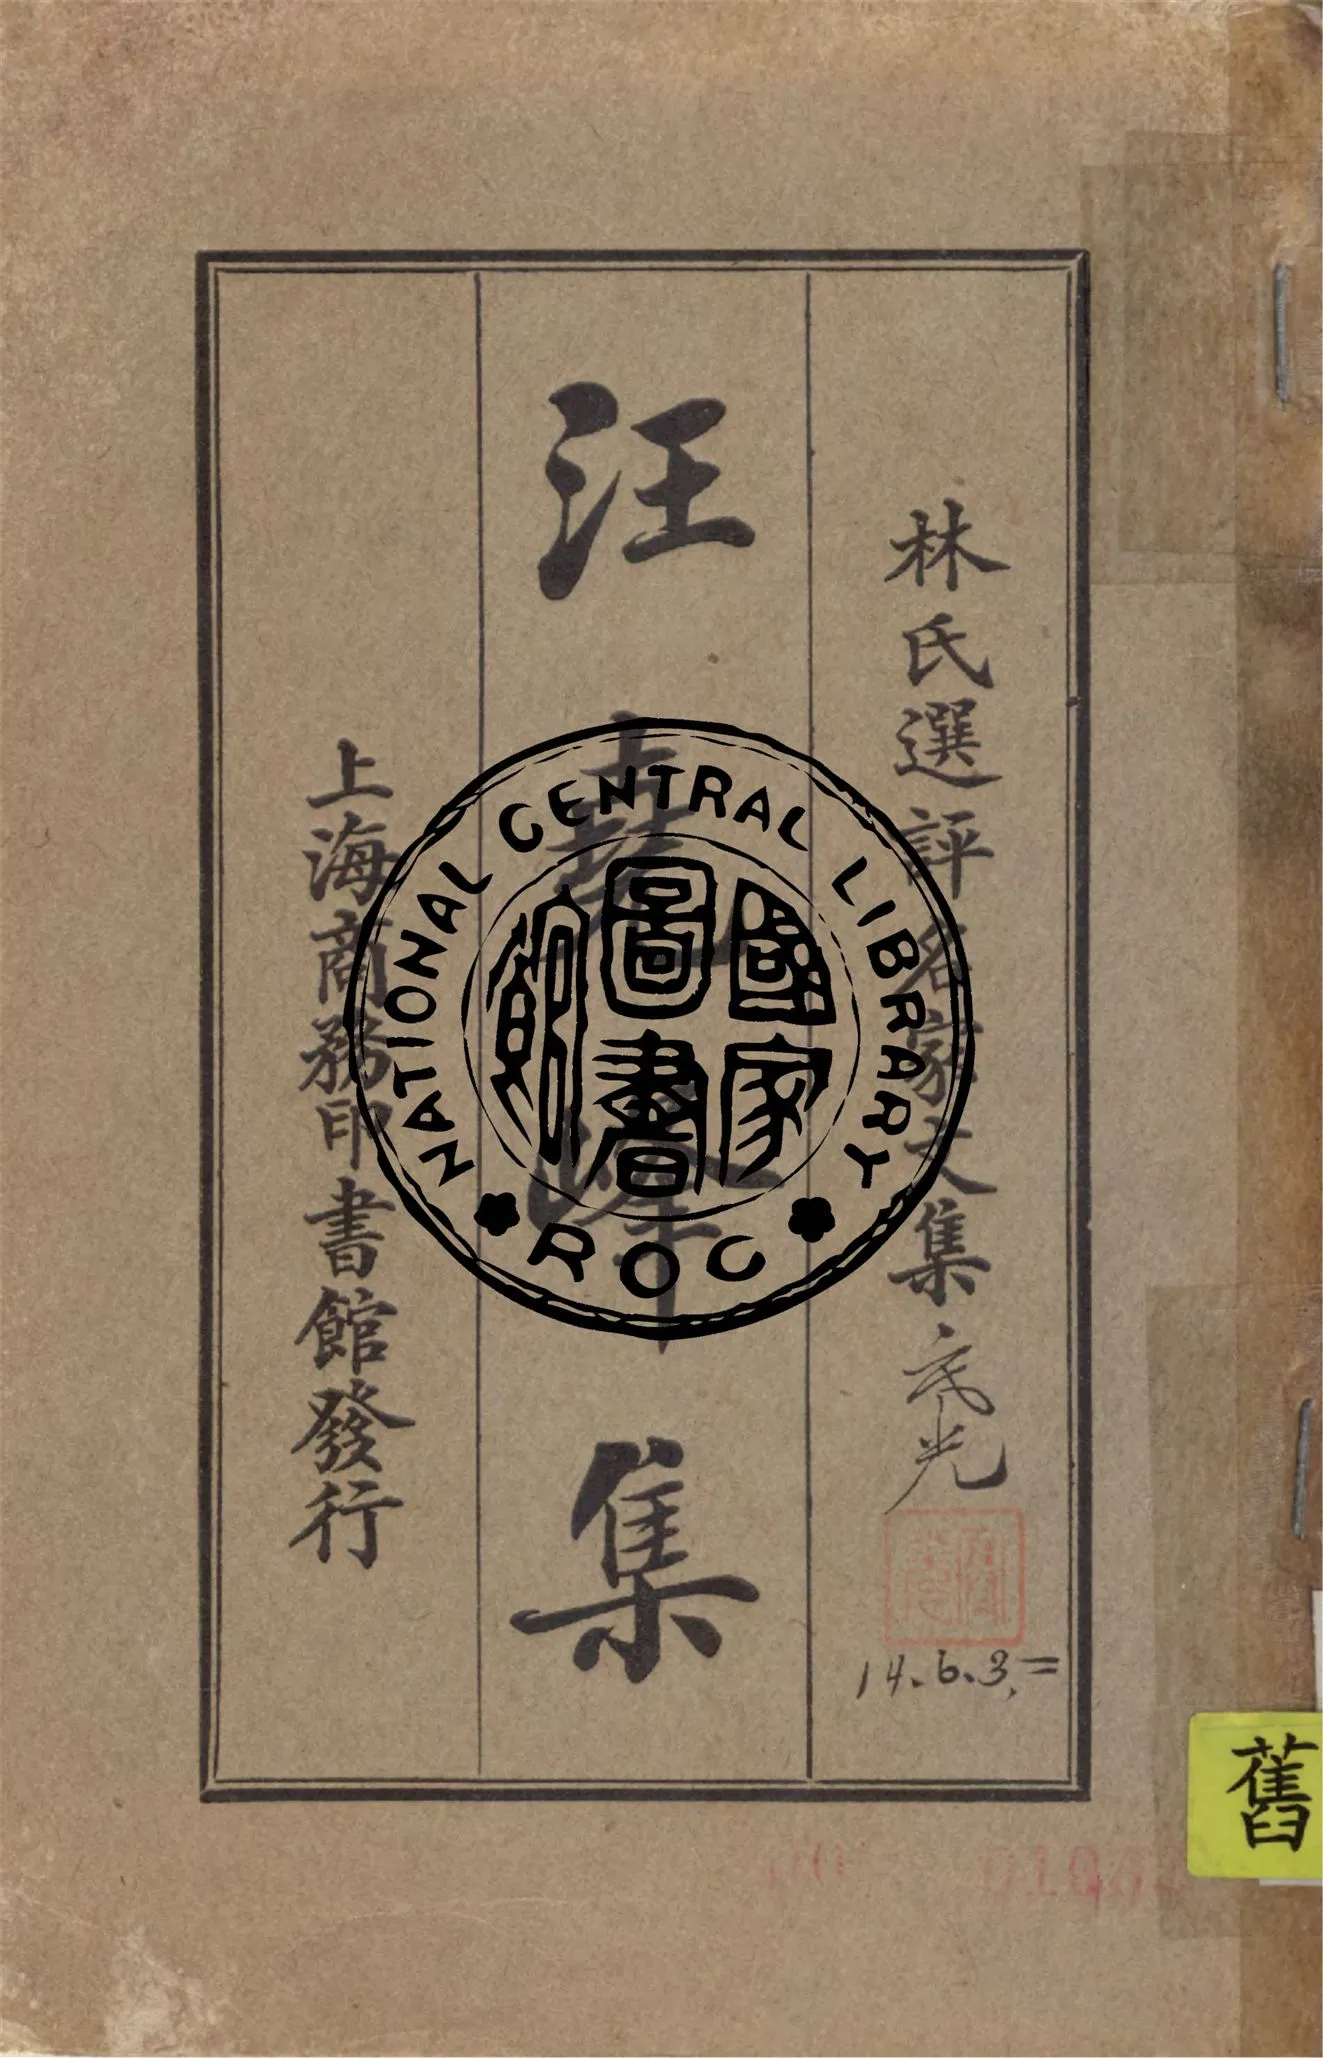 林氏選評名家文集
汪堯峰集
上海商務印書館發行
NATIONAL CENTRAL LIBRARY
國家圖書館
ROC
14.6.3.=
舊